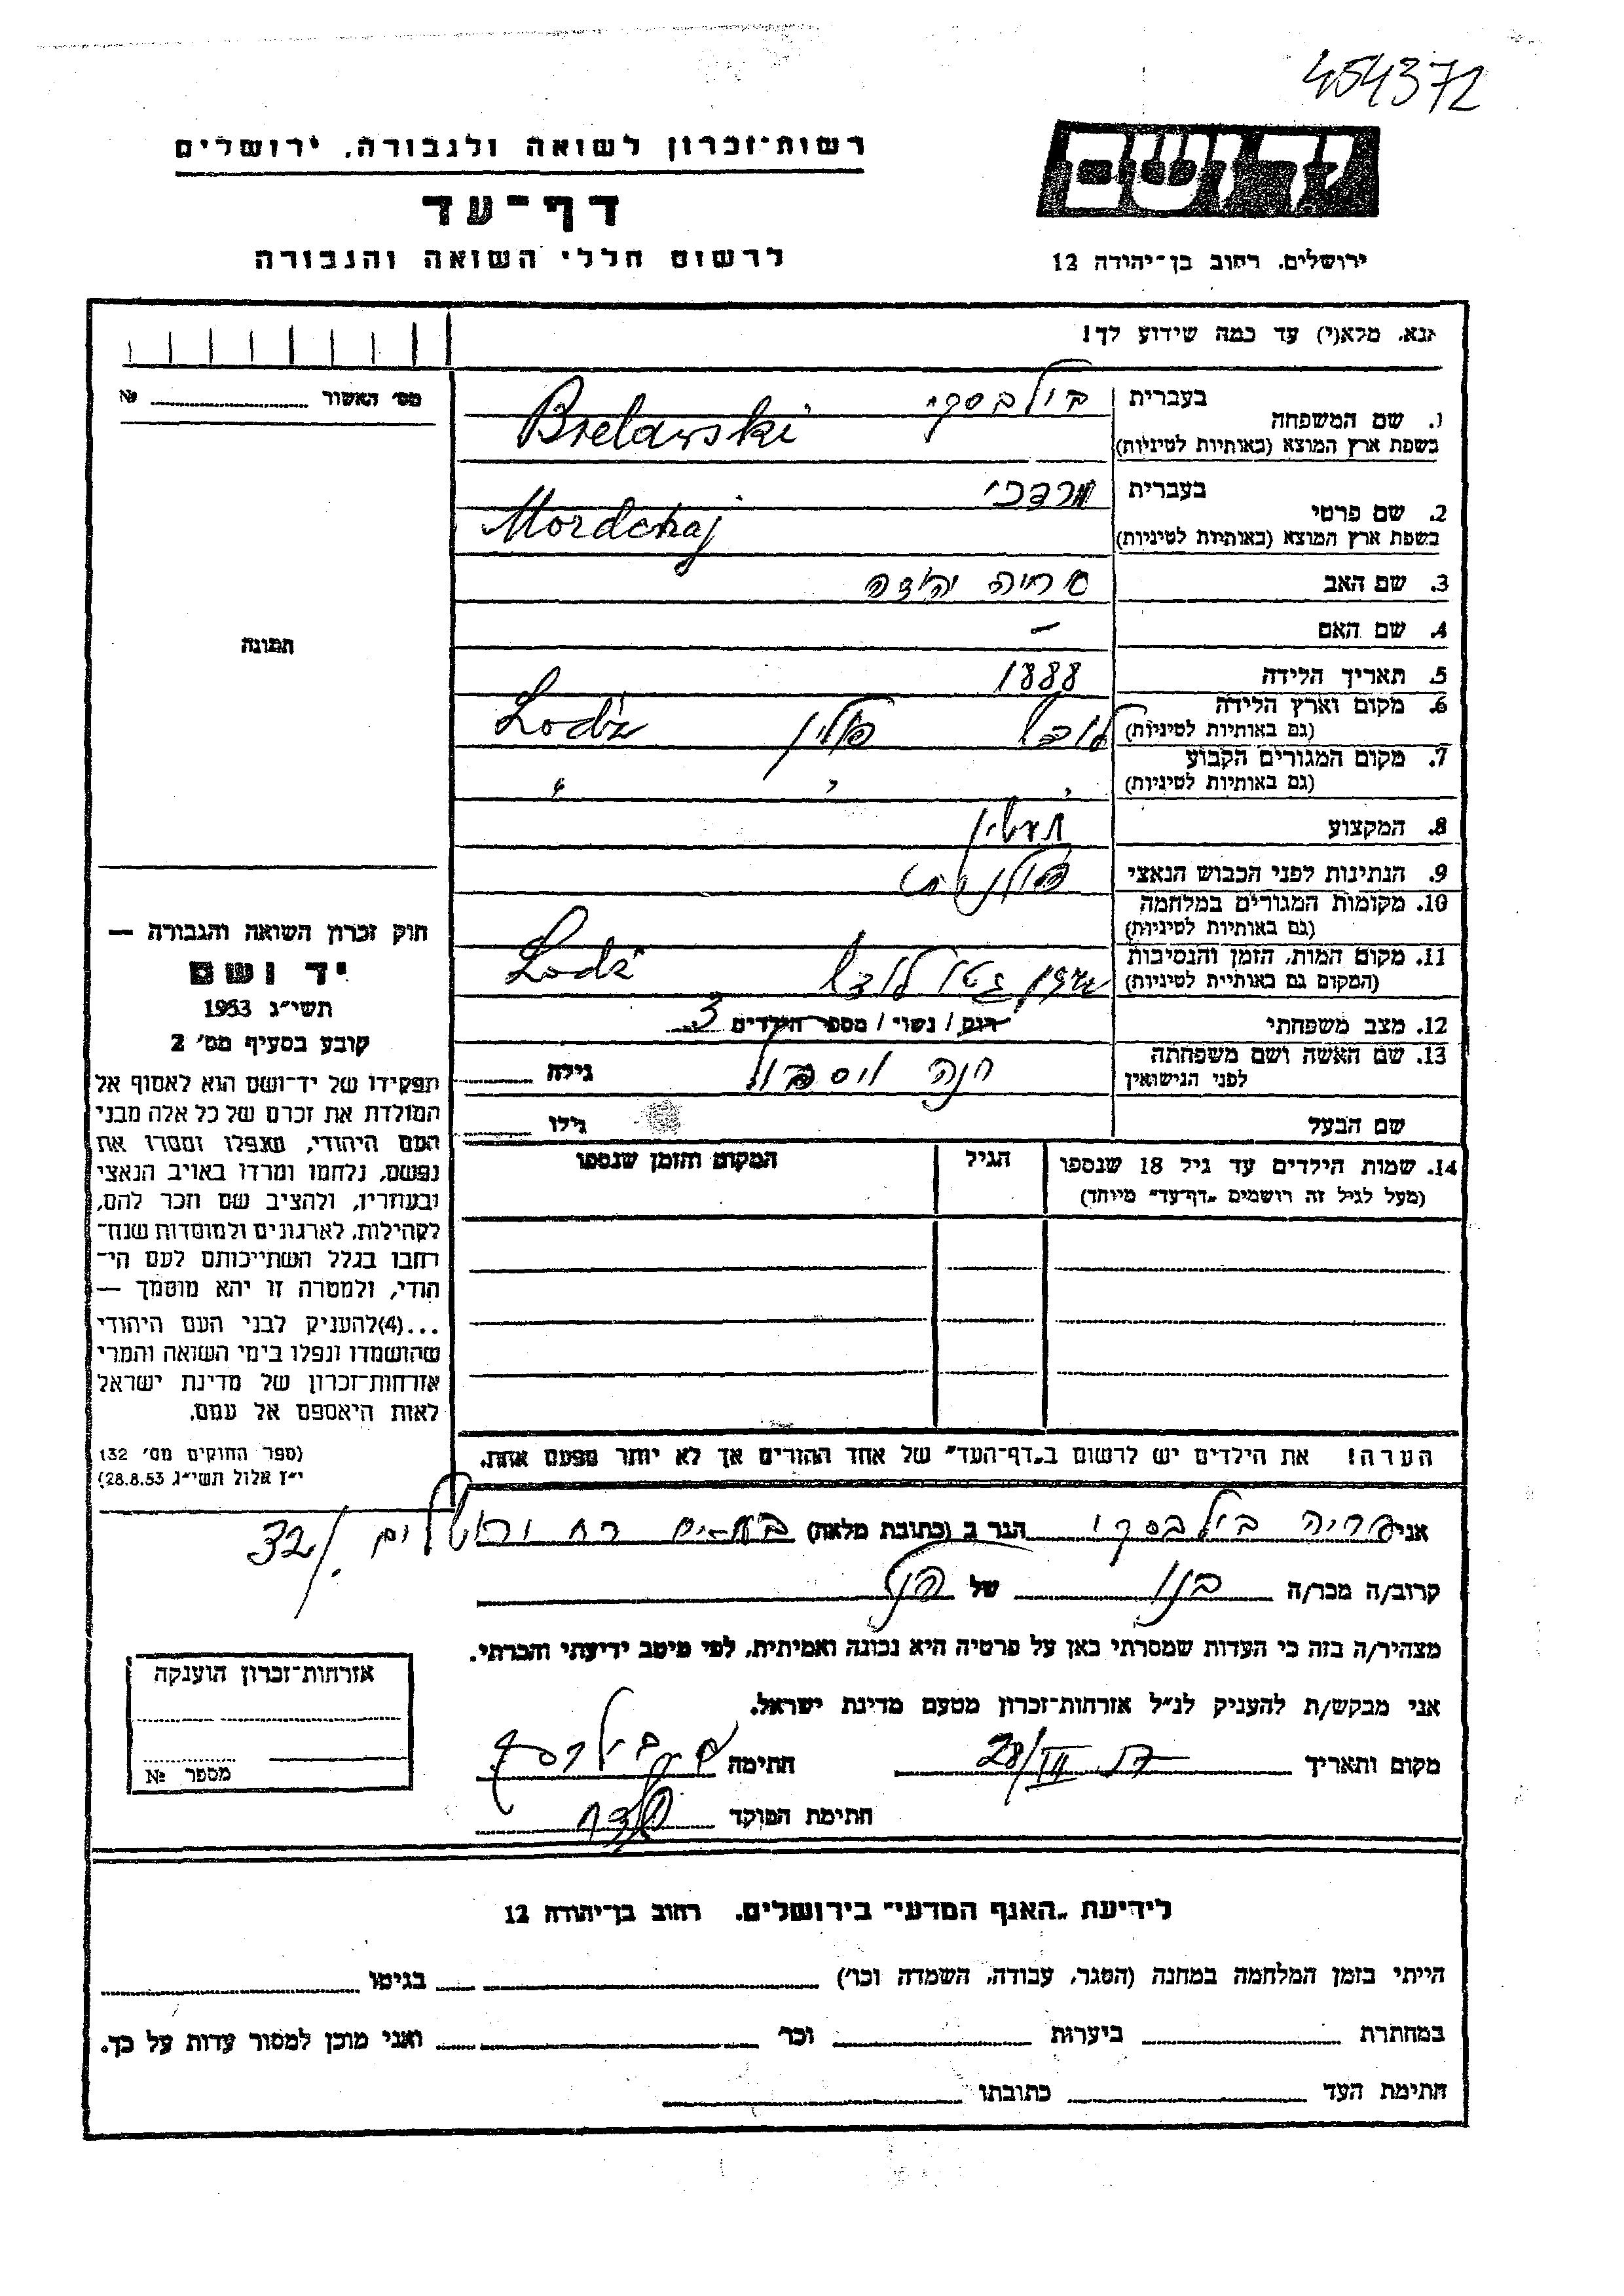 454372
רשות־זכרון לשואה ולגבורה, ירושלים
יד ושם
דף־עד
לרשום חללי השואה והגבורה
ירושלים, רחוב בן־יהודה 12
אנא, מלא(י) עד כמה שידוע לך!
מס׳ האשור №
1. שם המשפחה
בעברית
בילבסקי
בשפת ארץ המוצא (באותיות לטיניות)
Bielawski
2. שם פרטי
בעברית
מרדכי
בשפת ארץ המוצא (באותיות לטיניות)
Mordchaj
3. שם האב
יהודה
4. שם האם –
תמונה
5. תאריך הלידה 1888
6. מקום וארץ הלידה
(גם באותיות לטיניות)
לודז׳ פולין Lodź
7. מקום המגורים הקבוע
(גם באותיות לטיניות)
" " "
8. המקצוע תעשין
9. הנתינות לפני הכבוש הנאצי פולנית
10. מקומות המגורים במלחמה
(גם באותיות לטיניות)
11. מקום המות, הזמן והנסיבות
(המקום גם באותיית לטיניות)
גטו לודז׳ Lodź
12. מצב משפחתי רוק / נשוי / מספר הילדים 3
13. שם האשה ושם משפחתה
לפני הנישואין
חנה גילה
שם הבעל גילו
14. שמות הילדים עד גיל 18 שנספו
(מעל לגיל זה רושמים „דף־עד" מיוחד)
הגיל
המקום והזמן שנספו
הערה! את הילדים יש לרשום ב„דף־העד" של אחד ההורים אך לא יותר מפעם אחת.
חוק זכרון השואה והגבורה —
יד ושם
תשי״ג 1953
קובע בסעיף מס׳ 2
תפקידו של יד־ושם הוא לאסוף אל
המולדת את זכרם של כל אלה מבני
העם היהודי, שנפלו ומסרו את
נפשם, נלחמו ומרדו באויב הנאצי
ובעוזריו, ולהציב שם וזכר להם,
לקהילות, לארגונים ולמוסדות שנח־
רחבו בגלל השתייכותם לעם הי־
הודי, ולמטרה זו יהא מוסמך —
...(4)להעניק לבני העם היהודי
שהושמדו ונפלו בימי השואה והמרי
אזרחות־זכרון של מדינת ישראל
לאות היאספם אל עמם.
(ספר החוקים מס׳ 132
י״ז אלול תשי״ג 28.8.53)
אני בילבסקי הגר ב (כתובת מלאה) רח ירושלים 32/
קרוב/ה מכר/ה בנו של הנ״ל
מצהיר/ה בזה כי העדות שמסרתי כאן על פרטיה היא נכונה ואמיתית, לפי מיטב ידיעתי והכרתי.
אני מבקש/ת להעניק לנ״ל אזרחות־זכרון מטעם מדינת ישראל.
מקום ותאריך 28/III חתימה
חתימת הפוקד
אזרחות־זכרון הוענקה
מספר №
לידיעת „האגף המדעי" בירושלים, רחוב בן־יהודה 12
הייתי בזמן המלחמה במחנה (הסגר, עבודה, השמדה וכו׳) בגיטו
במחתרת ביערות וכו׳ ואני מוכן למסור עדות על כך.
חתימת העד כתובתו